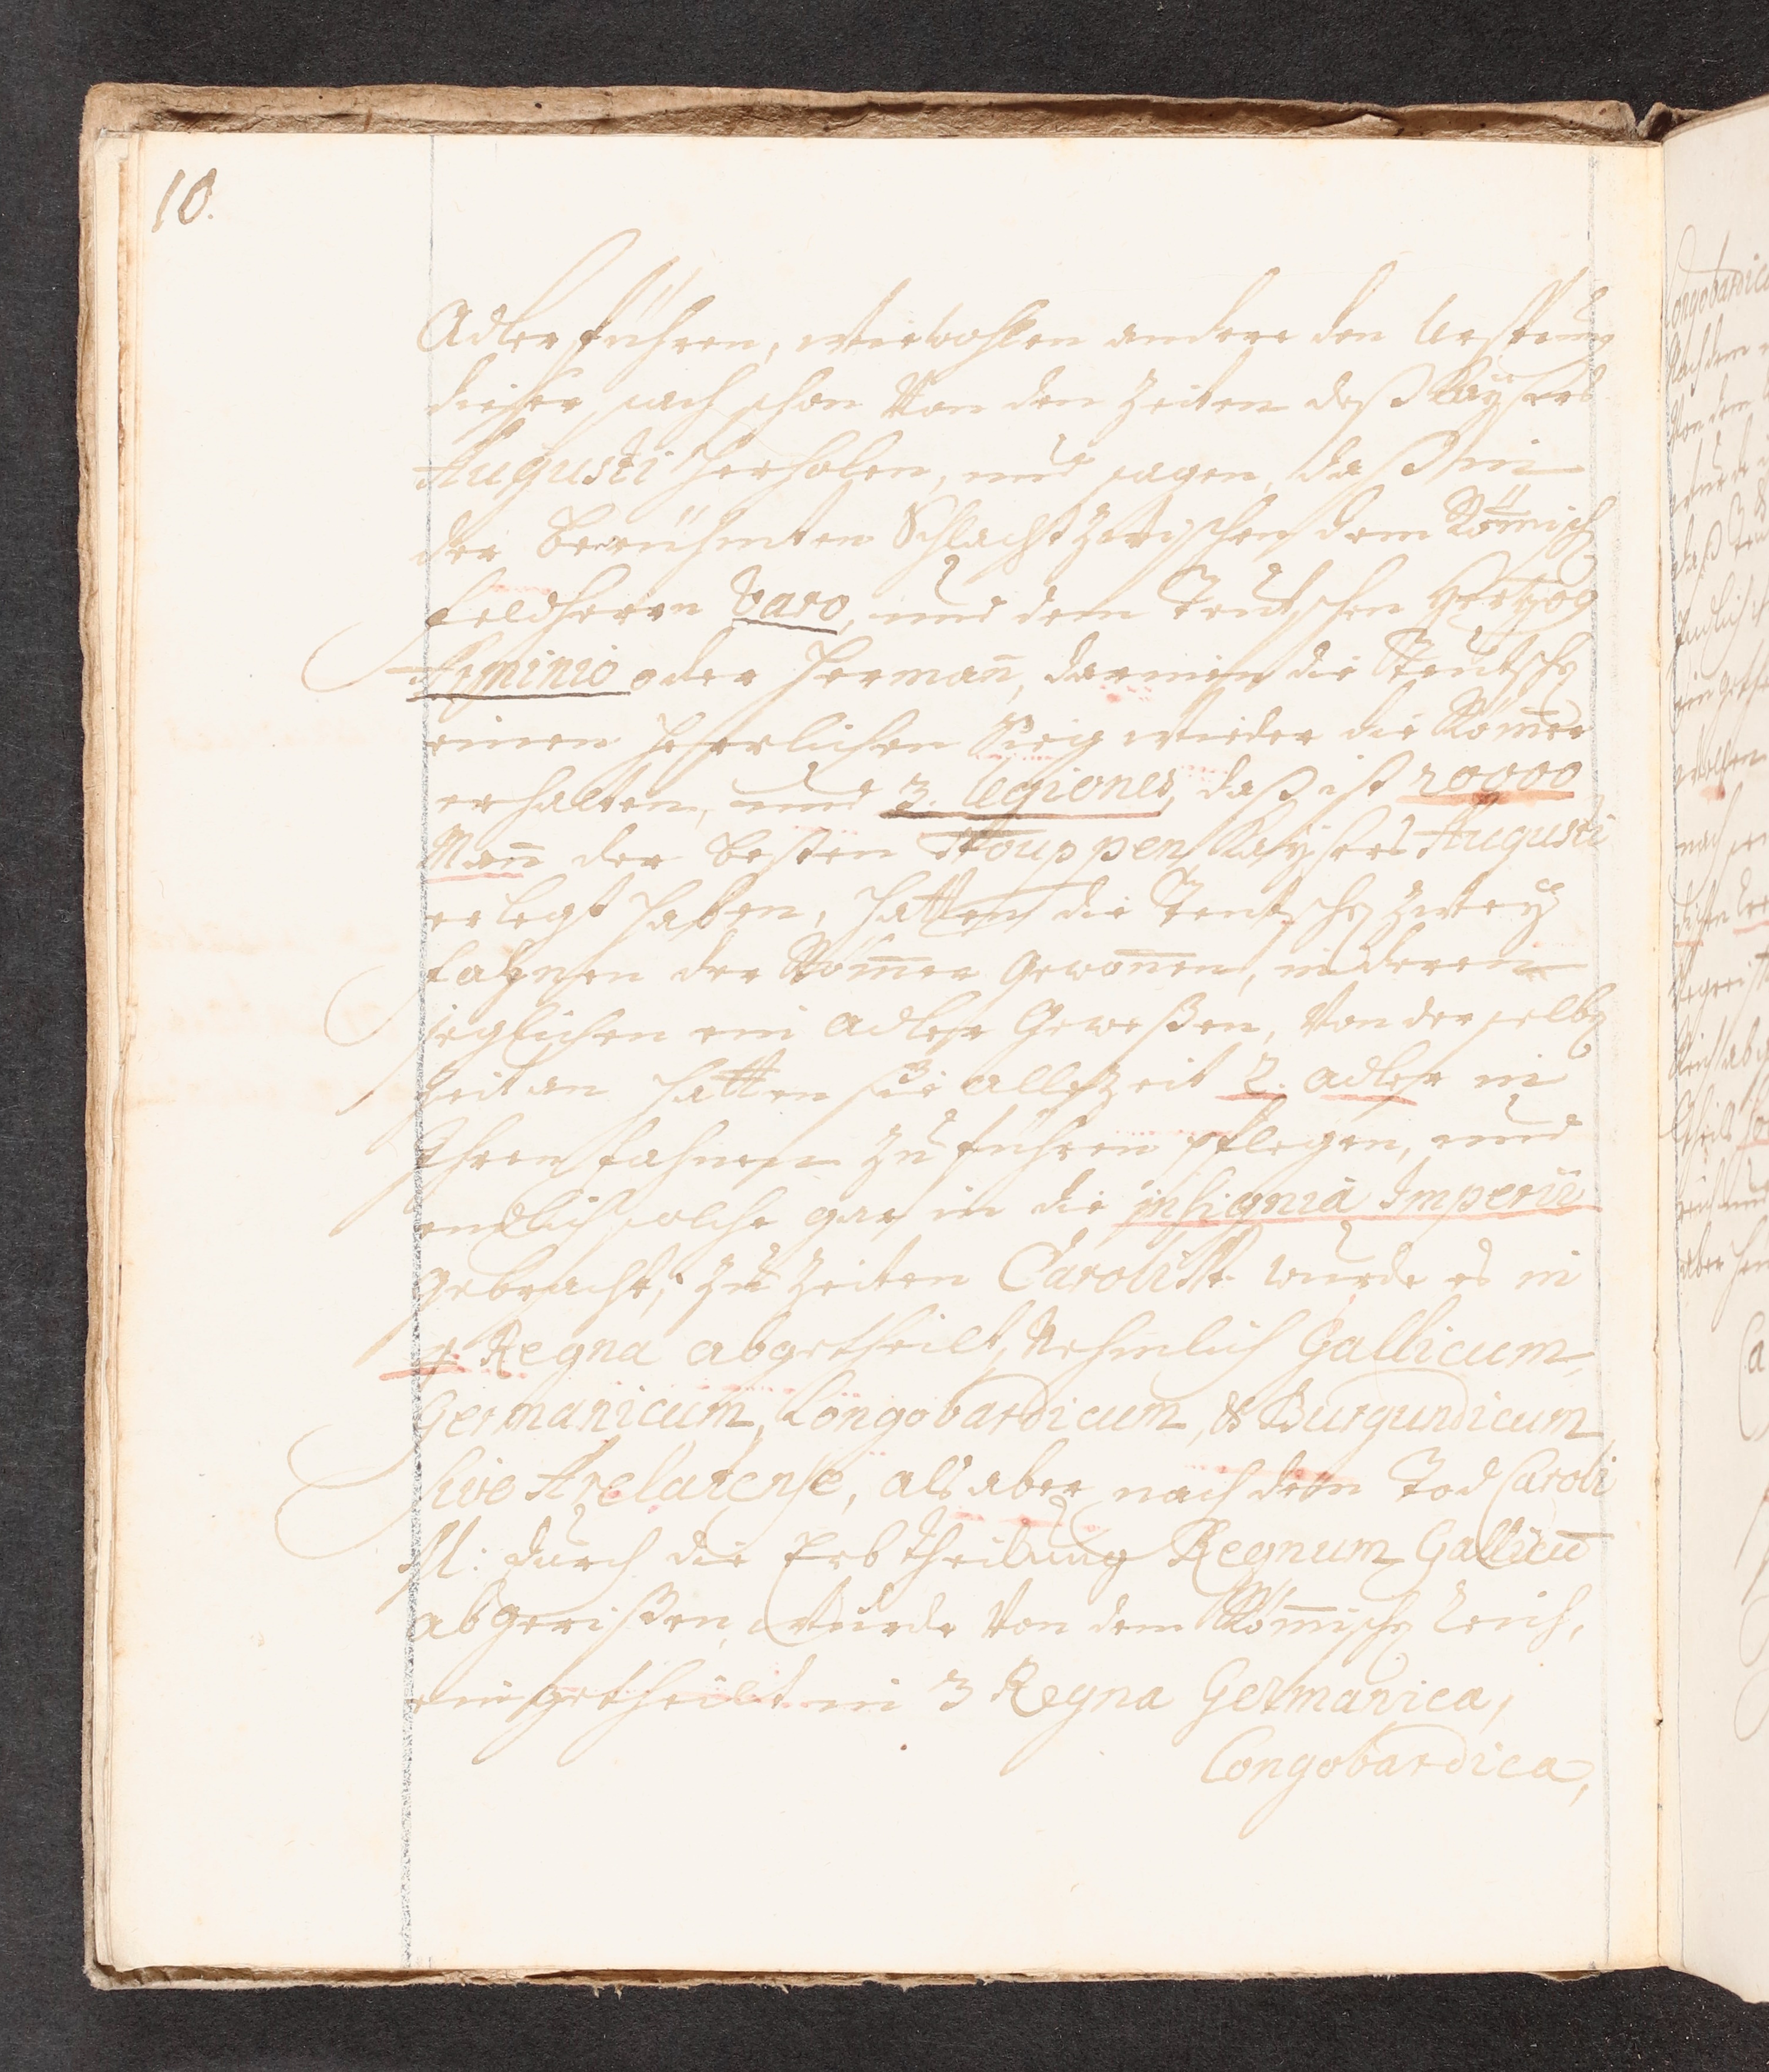 10.
Adler führen, wiewohlen andere den Ursprung
dieser sach schon Von den Zeiten deß Kaÿsers
Augusti herholen, und sagen, daß in
der berühmten Schlacht zwischen dem Römisch
feldherrn Varo, und dem Teutschen Hertzog
Arminio oder Herman̄, darinen die Teutsche
einen herrlichen Sieg wieder die Röm̄er
erhalten, und 3. legiones, daß ist 20000
Man̄ der besten trouppen Kaÿsers Augusti
erlegt haben, hatten die Teutsche zweÿ
fahnen der Röm̄er Gewon̄en, in deren
jeglichen ein Adler Geweßen, Von derselben
Zeit an hatten sie allezeit 2. Adler in
Ihren fahnen zu führen pflegen, und
endlich solche gar in die insignia Imperii
gebracht, zu Zeiten Caroli M. wurde es in
4 Regna abgetheilt, Nehmlich Gallicum,
Germanicum, Longobardicum, & Burgundicum
sive Arelatense, als aber nach dem Tod Caroli
M: durch die Erbtheilung Regnum Gallicū
abgerißen, wurde Von dem Röm̄ische Reich,
eingetheilt in 3 Regna Germanica,
Longobardica,